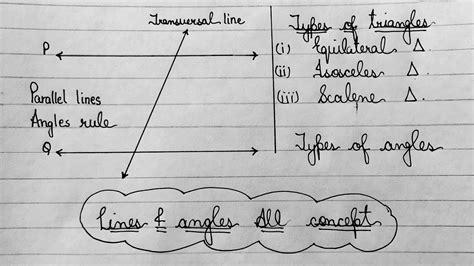 Transversal line
P
Parallel lines
Angles rule
Q
Types of triangles
(i) Equilateral Δ
(ii) Isosceles Δ.
(iii) Scalene Δ.
Types of angles
Lines & angles All concept